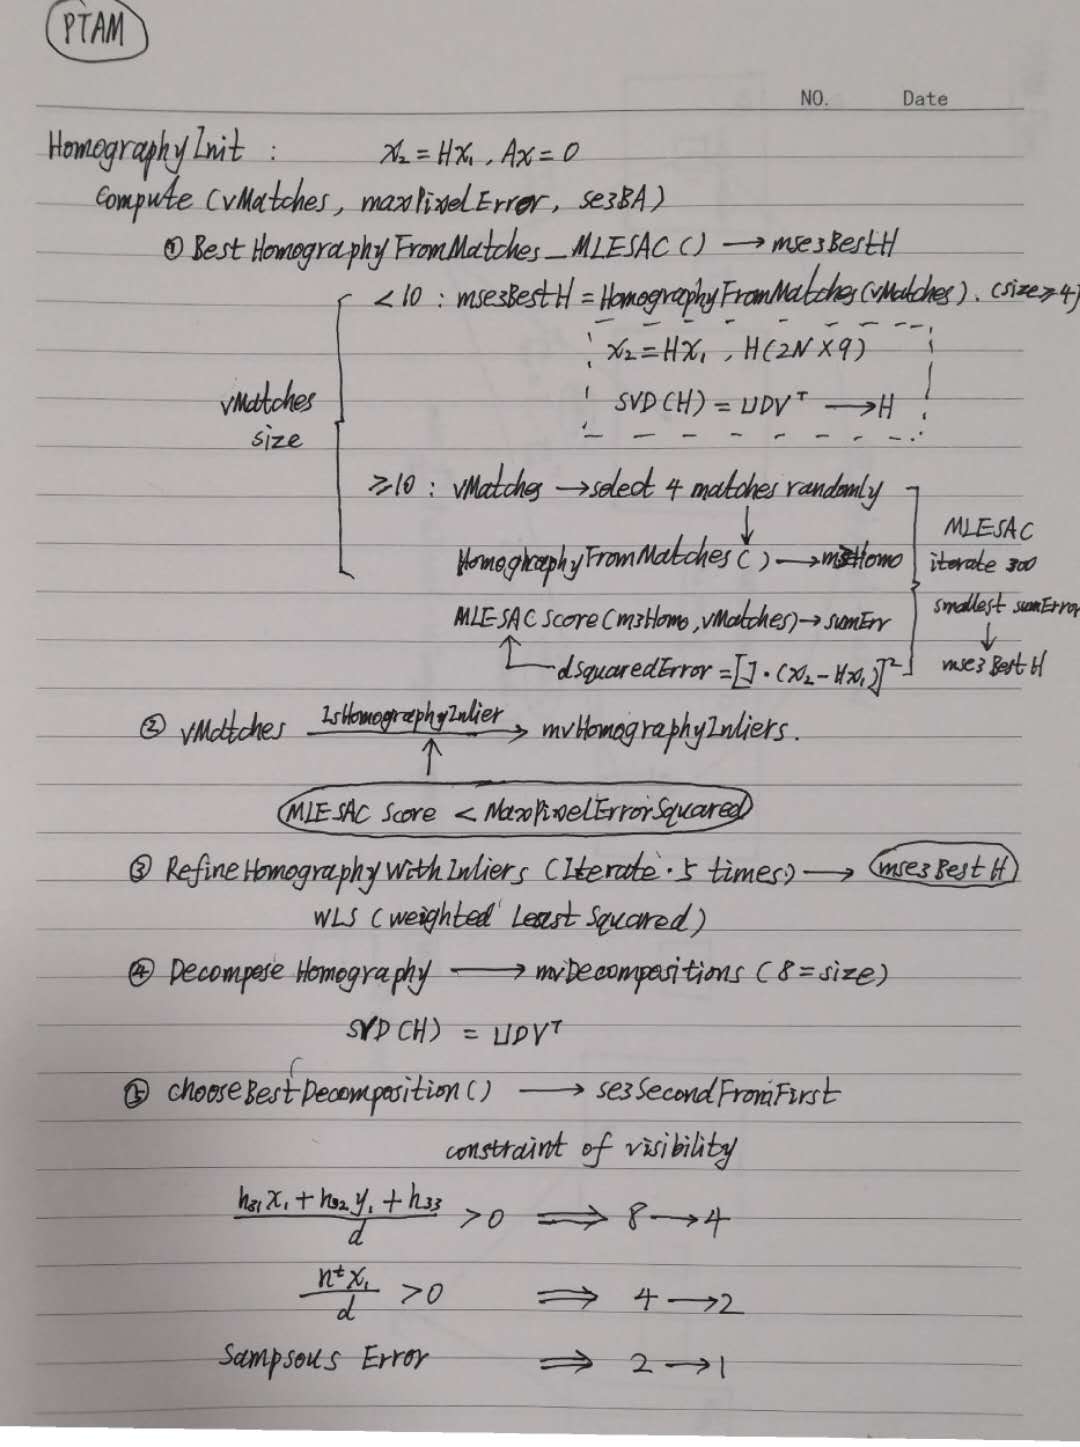 PTAM
NO. Date
HomographyInit : x₂ = Hx₁ , Ax = 0
Compute (vMatches, maxPixelError, se3BA)
① BestHomographyFromMatches_MLESAC () → mse3BestH
<10 : mse3BestH = HomographyFromMatches(vMatches). (size ≥ 4)
x₂ = Hx₁ , H(2N×9)
SVD(H) = UDVᵀ → H
vMatches
size
≥10 : vMatches → select 4 matches randomly
HomographyFromMatches() → m3Homo
MLESAC Score(m3Homo, vMatches) → sumErr
dSquaredError = [J·(x₂ - Hx₁)]²
MLESAC
iterate 300
smallest sumError
↓
mse3BestH
② vMatches IsHomographyInlier → mvHomographyInliers.
MLESAC Score < MaxPixelErrorSquared
③ RefineHomographyWithInliers (Iterate · 5 times) → mse3BestH
WLS (weighted Least Squared)
④ Decompose Homography → mvDecompositions (8 = size)
SVD(H) = UDVᵀ
⑤ chooseBestDecomposition() → se3SecondFromFirst
constraint of visibility
(h₃₁x₁ + h₃₂y₁ + h₃₃)/d > 0 ⟹ 8 → 4
nᵗx₁/d > 0 ⟹ 4 → 2
Sampsous Error ⟹ 2 → 1